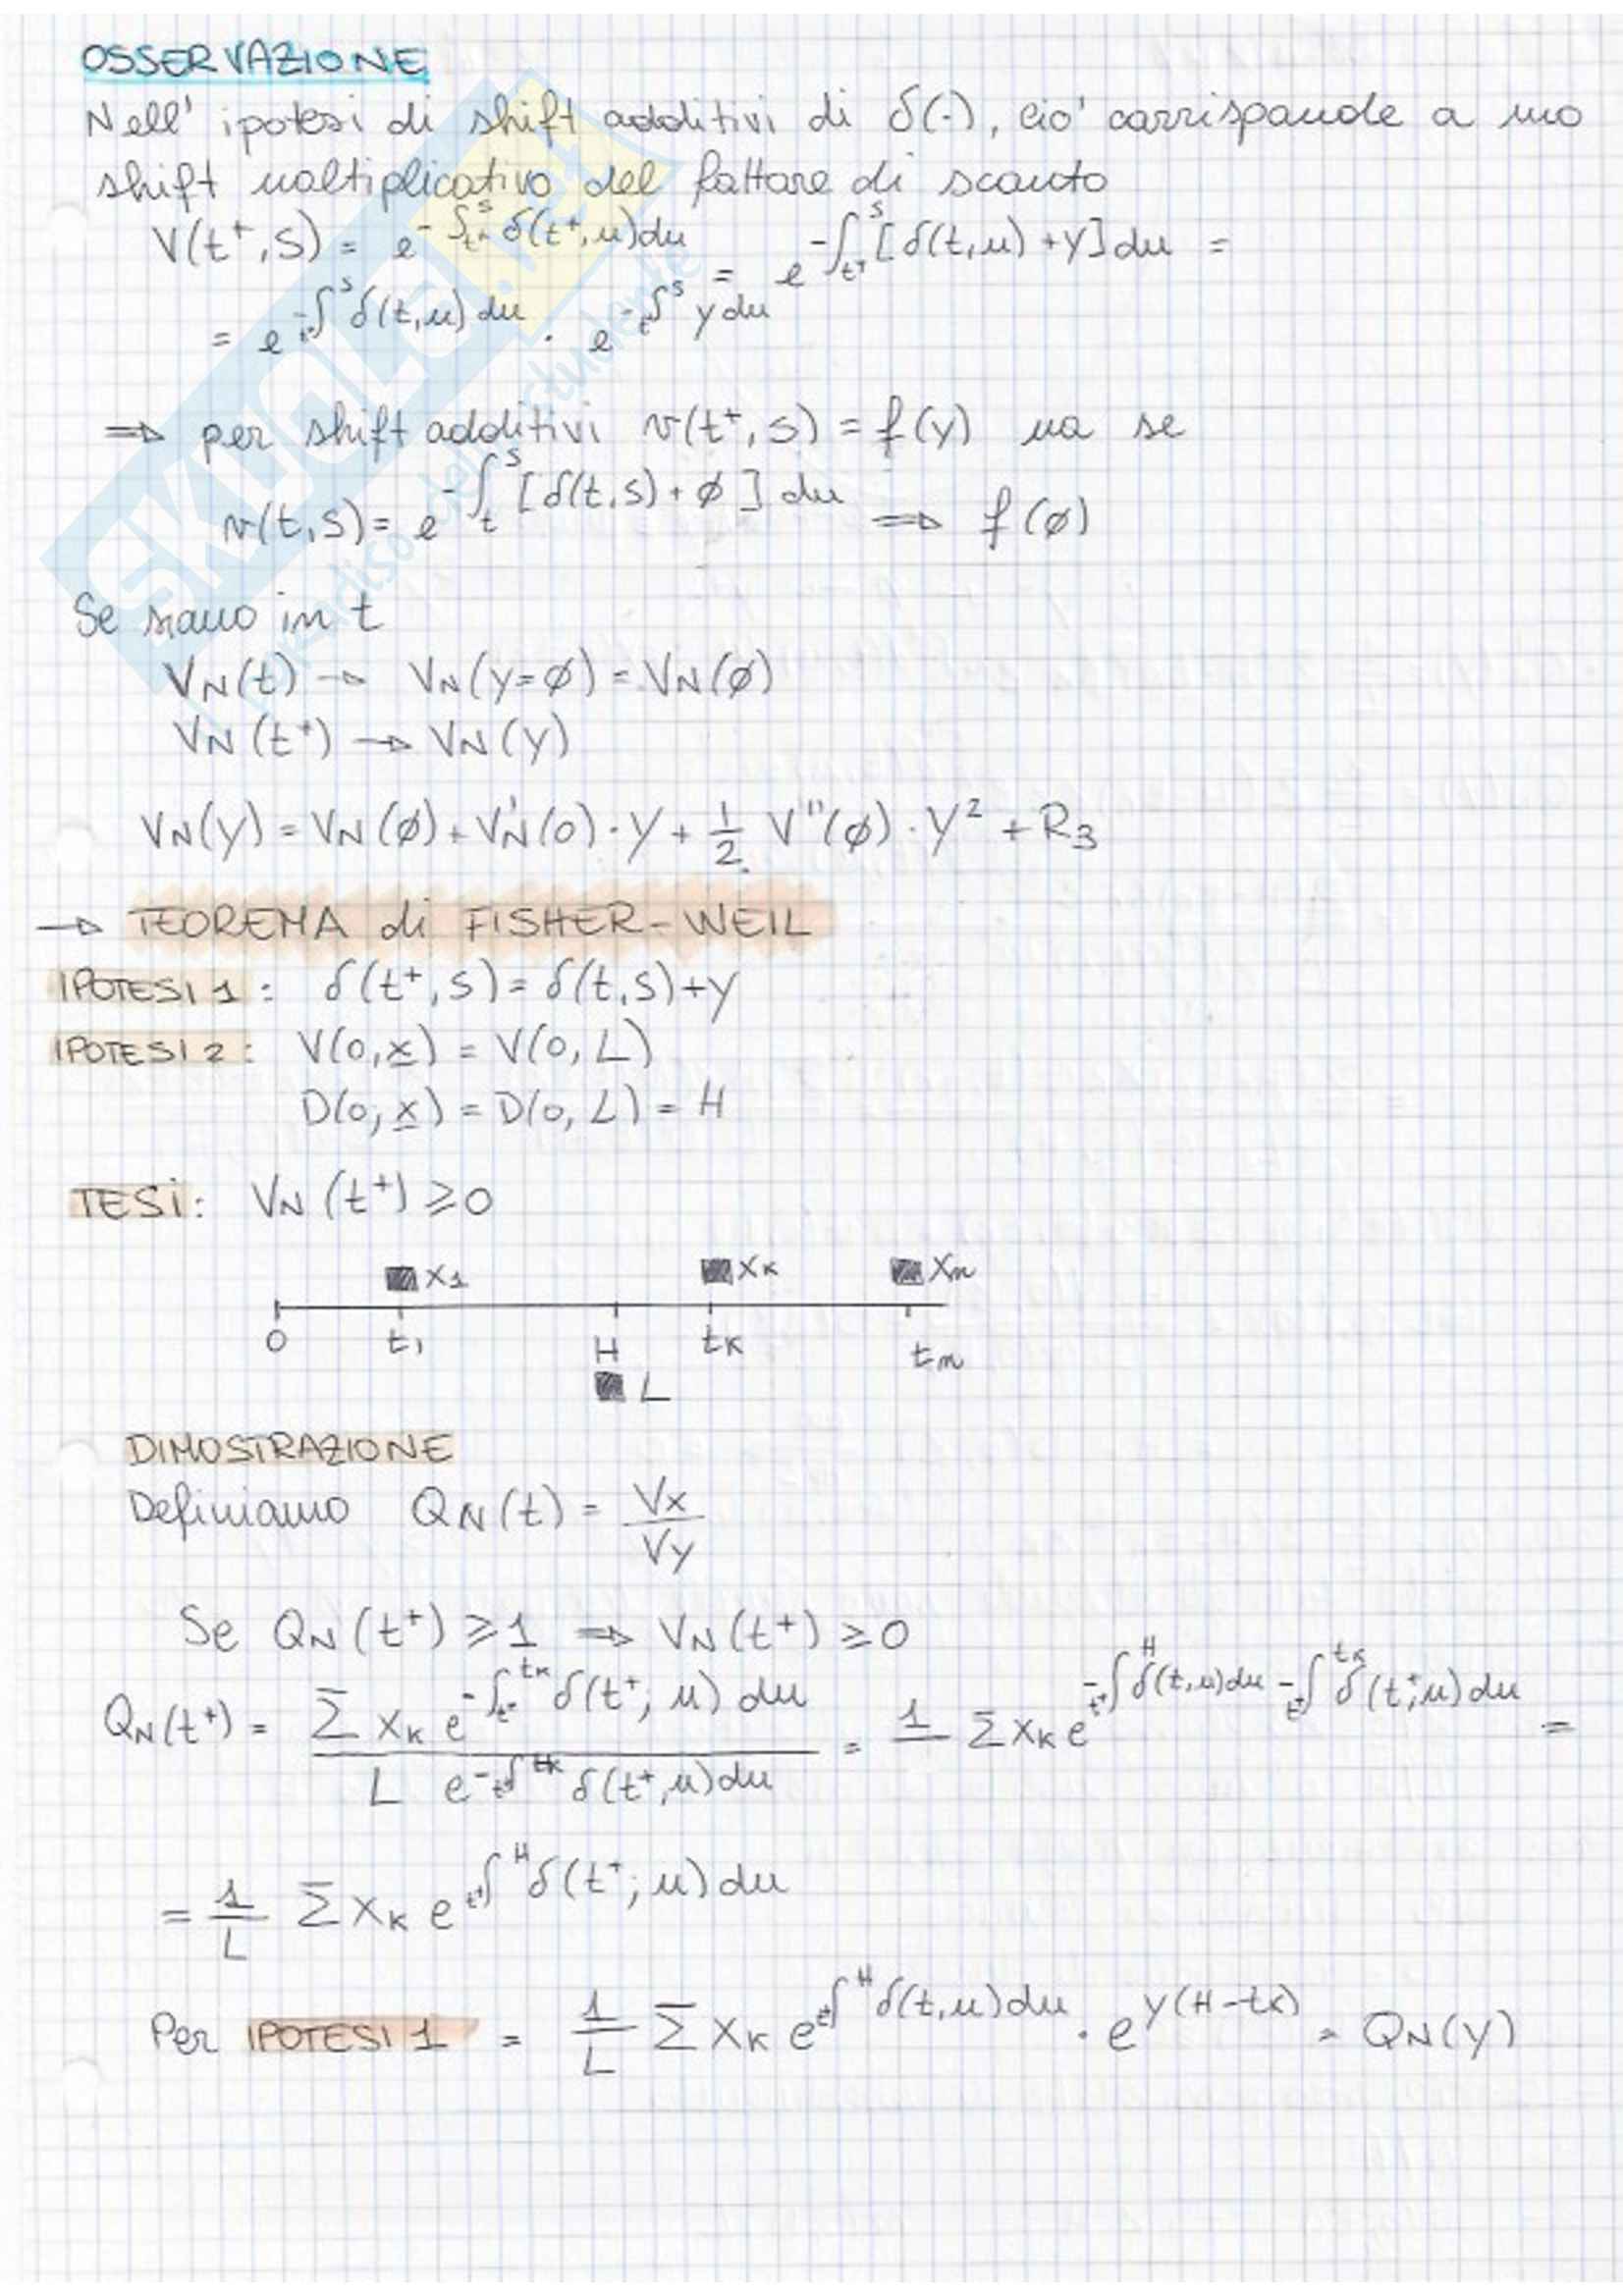 OSSERVAZIONE
Nell' ipotesi di shift additivi di δ(·), cio' corrisponde a uno
shift moltiplicativo del fattore di sconto
V(t⁺,S) = e^{-∫_{t⁺}^{s} δ(t⁺,u)du} = e^{-∫_{t⁺}^{s} [δ(t,u)+Y]du} =
= e^{-∫_{t⁺}^{s} δ(t,u)du} · e^{-∫_{t}^{s} y du}
⇒ per shift additivi v(t⁺,s) = f(y) ma se
v(t,s) = e^{-∫_{t}^{s} [δ(t,s)+ø] du} ⇒ f(ø)
Se siamo in t
VN(t) → VN(y=ø) = VN(ø)
VN(t⁺) → VN(y)
VN(y) = VN(ø) + V'N(0)·Y + 1/2 V''(ø)·Y² + R3
→ TEOREMA di FISHER-WEIL
IPOTESI 1: δ(t⁺,s) = δ(t,s)+y
IPOTESI 2: V(0,x) = V(0,L)
D(0,x) = D(0,L) = H
TESI: VN(t⁺) ≥ 0
X1 XK Xn
0 t1 H tK tn
L
DIMOSTRAZIONE
Definiamo QN(t) = Vx/Vy
Se QN(t⁺) ≥ 1 ⇒ VN(t⁺) ≥ 0
QN(t⁺) = Σ XK e^{-∫_{t⁺}^{tK} δ(t⁺,u) du} / L e^{-∫_{t⁺}^{tK} δ(t⁺,u)du} = 1/ Σ XK e^{-∫_{t⁺}^{H} δ(t,u)du -∫_{t⁺}^{tK} δ(t⁺,u)du} =
= 1/L Σ XK e^{∫_{t⁺}^{H} δ(t⁺;u)du}
Per IPOTESI 1 = 1/L Σ XK e^{∫_{t⁺}^{H} δ(t,u)du} · e^{y(H-tK)} = QN(y)